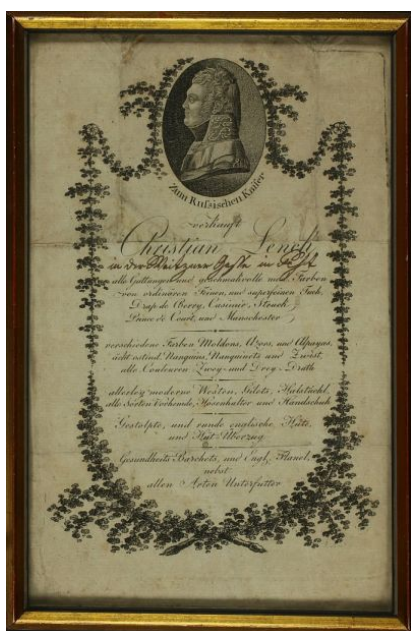 Zum Russischen Kaiser
verkauft
Christian
in der Waitzner Gasse in Pest
alle Gattungen und geschmakvolle neue Farben
von ordinären Feinen, und superfeinen Tuch,
Drap de Berry, Casimir, Strouk,
und Manschester,
verschiedene Farben Moldons, und Alpagas,
ächt ostind. Nanquins, Nanquinets und Zwist,
alle Couleuren Zwey- und Drey-Drath
allerley moderne Westen, Gilets, Halstüchl,
alle Sorten Vorhemde, Hosenhalter und Handschuh
Gestolpte, und runde englische Hüte,
und Hut-Uiberzug
Gesundheits Barchets, und Engl. Flanel,
nebst
allen Arten Unterfutter